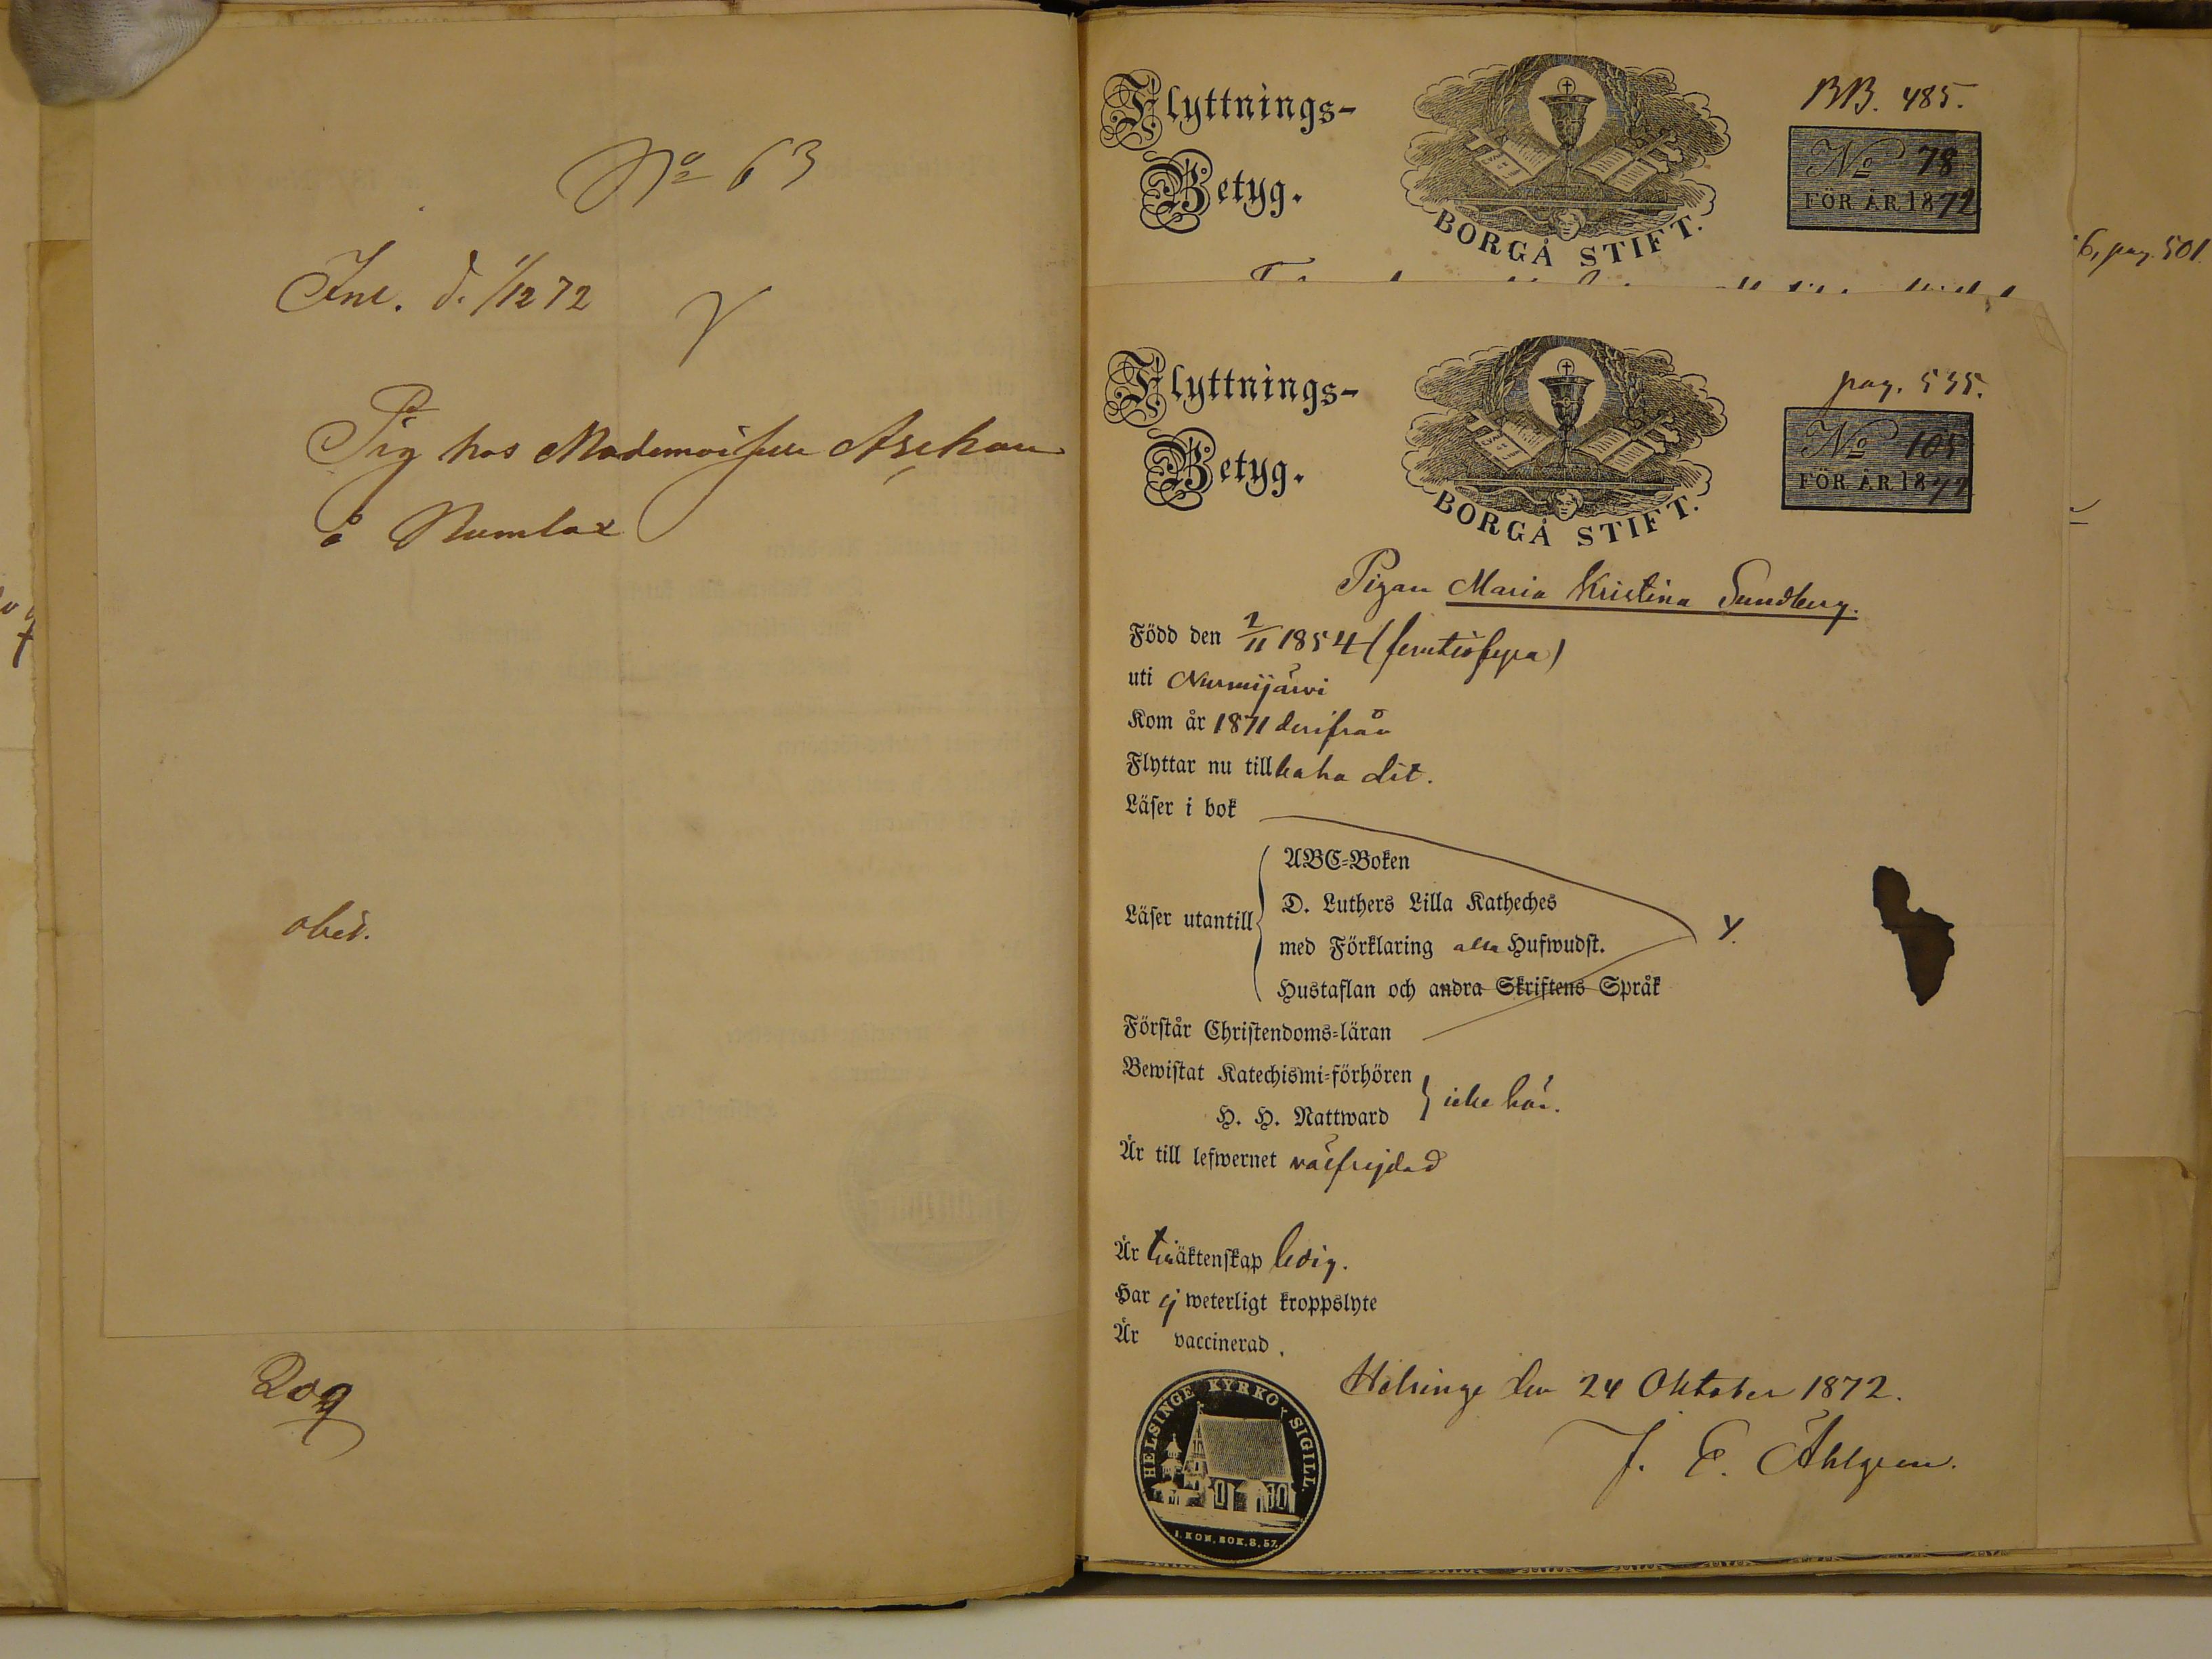 No 63
Inl. d. 1/12 72
Pig hos Mademoiselle Aschan
å Numlax
obet.
Flyttnings-
Betyg.
BORGÅ STIFT.
BB. 485.
No 78
FÖR ÅR 1872
6, pag. 501
Flyttnings-
Betyg.
BORGÅ STIFT.
pag. 535.
No 105
FÖR ÅR 1872
Pigan Maria Kristina Sundberg.
Född den 2/11 1854 (femtiofyra)
uti Nurmijärvi
Kom år 1871 derifrån
Flyttar nu tillbaka dit.
Läser i bok
ABC-Boken
D. Luthers Lilla Katheches
Läser utantill
med Förklaring alla Hufwudst.
Hustaflan och andra Skriftens Språk
Förstår Christendoms-läran
Bewistat Katechismi-förhören
H. H. Nattward
icke här.
Är till lefwernet välfrejdad
Är till äktenskap ledig.
Har ej weterligt kroppslyte
Är vaccinerad.
Helsinge den 24 Oktober 1872.
J. E. Åhlgren.
HELSINGE KYRKO SIGILL.
1. KON. BOK. 8, 57.